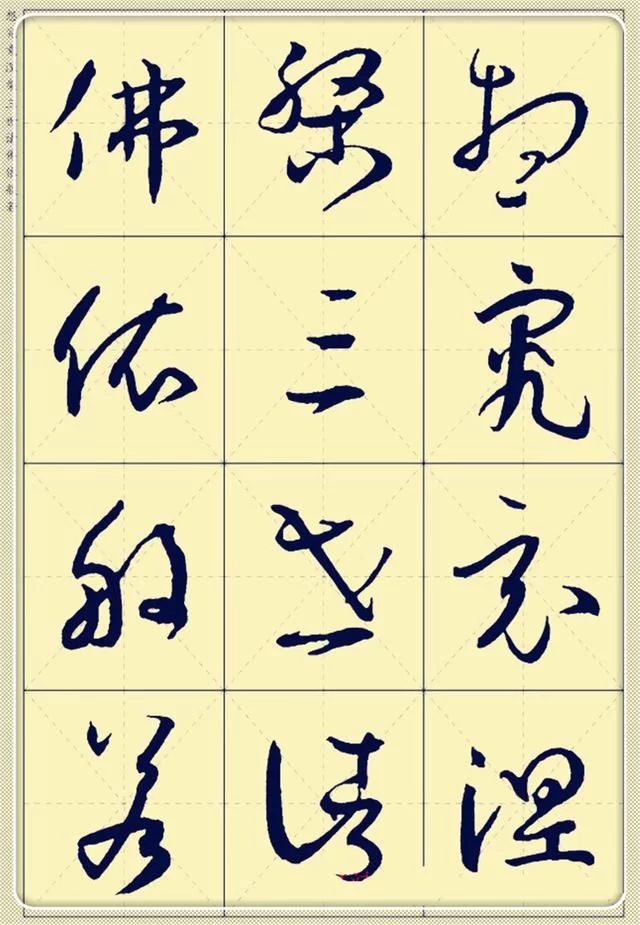 想究竟涅
槃三世諸
佛依般若